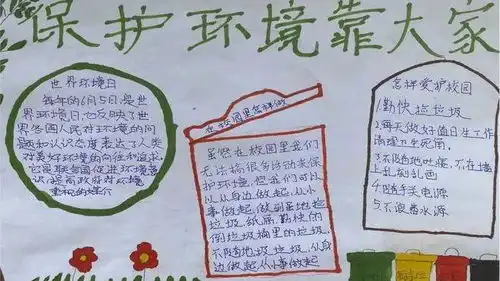 保护环境靠大家
世界环境日
每年的6月5日,是世
界环境日,也反映了世
界各国人民对环境的问
题和认识态度表达了人类
对美好环境的向往和追求。
它是联合国促进环境意
识、提高政府对环境
重视的媒介
在校园里怎样做
虽然在校园里我们
无法搞很多活动来保
护环境,但我们可以
从从身边做起,从小
事做起,做到见地捡
垃圾,纸屑,勤快的
倒垃圾桶里的垃圾,
不随地垃圾垃圾,从身
边做起,从小事做起
怎样爱护校园
1.勤快捡垃圾
2.每天做好值日生工作
清理卫生死角。
3.不随地吐痰,不在墙
上乱刻乱画
4.随手关电源
5.不浪费水源